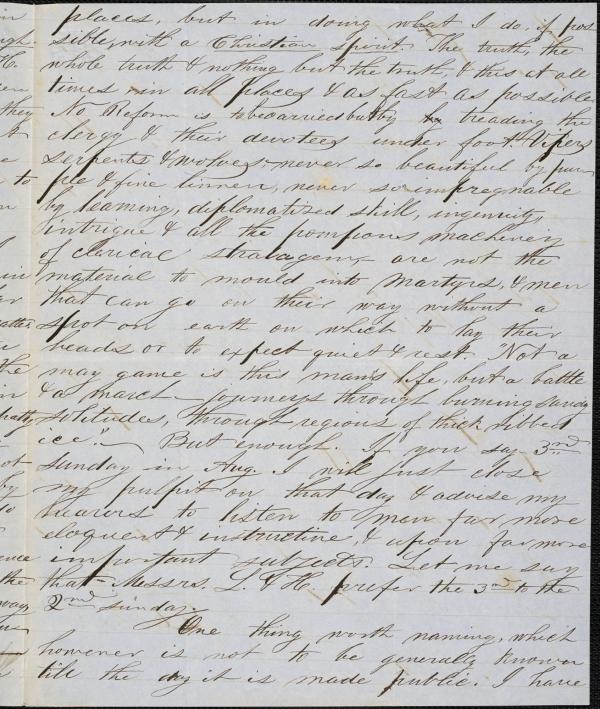 places, but in doing what I do, if pos
sible, with a Christian spirit. The truth, the
whole truth & nothing but the truth, & this at all
times in all places & as fast as possible
No Reform is to be carried but by treading the
clergy & their devotees under foot. Vipers
serpents & wolves, never so beautiful by pur
ple & fine linnen, never so impregnable
by learning, diplomatized skill, ingenuity,
intrigue & all the pompous machinery
of clarical stratagem are not the
material to mould into Martyrs, & men
that can go on their way without a
spot on earth on which to lay their
heads or to expect quiet & rest. Not a
may game is this man's life, but a battle
& a march - journeys through burning sandy
solitudes, through regions of thick ribbed
ice. - But enough. If you say 3rd
Sunday in Aug. I will just close
my pulpit on that day & advise my
hearers to listen to men far more
eloquent & instructive, & upon far more
important subjects. Let me say
that Messrs. L. & H. prefer the 3rd to the
2nd Sunday.
One thing worth naming, which
however is not to be generally known
till the day it is made public. I have